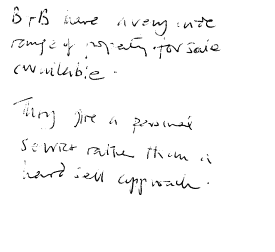 B+B have a very wide
range of property for sale
available.
They give a personal
service rather than a
hard sell approach.